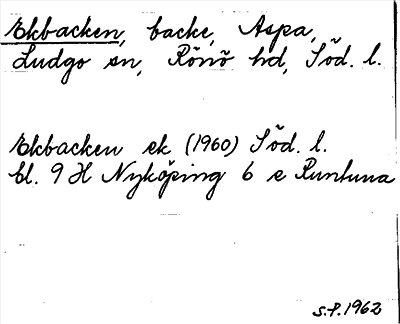 Ekbacken, backe, Aspa,
Ludgo sn, Rönö hd, Söd. l.
Ekbacken ek (1960) Söd. l.
bl. 9 H Nyköping 6 e Runtuna
S.P. 1962